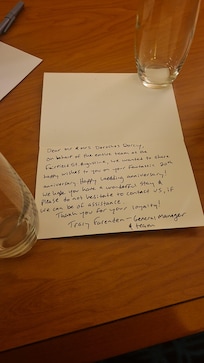 Dear Mr & Mrs
on behalf of the entire team at the
Fairmont St. Andrews, we wanted to share
happy wishes to you on your fantastic 20th
anniversary. Happy wedding anniversary!
We hope you have a wonderful stay &
please to not hesitate to contact us, if
we can be of assistance.
Thank you for your loyalty!
General Manager
& team